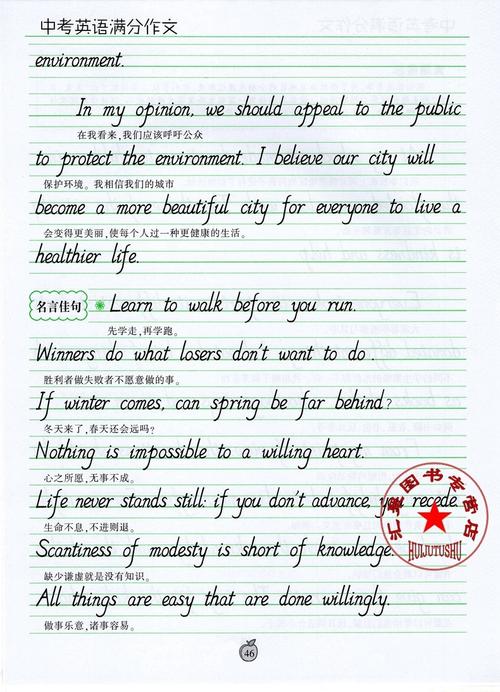 中考英语满分作文
environment.
In my opinion, we should appeal to the public
在我看来,我们应该呼吁公众
to protect the environment. I believe our city will
保护环境。我相信我们的城市
become a more beautiful city for everyone to live a
会变得更美丽,使每个人过一种更健康的生活。
healthier life.
名言佳句 Learn to walk before you run.
先学走,再学跑。
Winners do what losers don't want to do.
胜利者做失败者不愿意做的事。
If winter comes, can spring be far behind?
冬天来了,春天还会远吗?
Nothing is impossible to a willing heart.
心之所愿,无事不成。
Life never stands still: if you don't advance, you recede.
生命不息,不进则退。
Scantiness of modesty is short of knowledge.
缺少谦虚就是没有知识。
All things are easy that are done willingly.
做事乐意,诸事容易。
汇聚图书专营店
HUIJUTUSHU
46